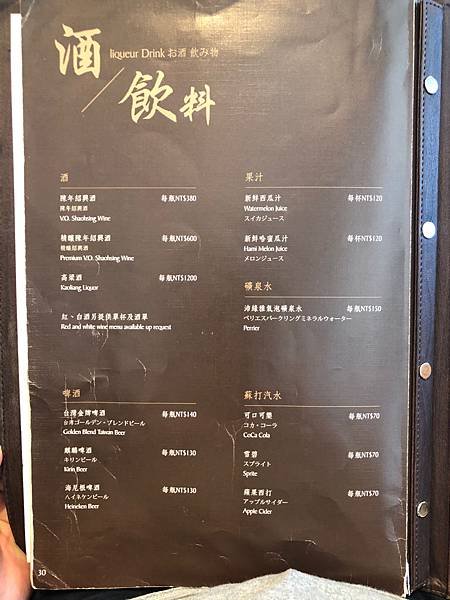 酒/飲料
liqueur Drink お酒 飲み物
酒
陳年紹興酒 每瓶NT$380
陳年紹興酒
V.O. Shaohsing Wine
精釀陳年紹興酒 每瓶NT$600
精釀紹興酒
Premium V.O. Shaohsing Wine
高粱酒 每瓶NT$1200
Kaoliang Liquor
紅、白酒另提供單杯及酒單
Red and white wine menu available up request
啤酒
台灣金牌啤酒 每瓶NT$140
台湾ゴールデン・ブレンドビール
Golden Blend Taiwan Beer
麒麟啤酒 每瓶NT$130
キリンビール
Kirin Beer
海尼根啤酒 每瓶NT$130
ハイネケンビール
Heineken Beer
果汁
新鮮西瓜汁 每杯NT$120
Watermelon Juice
スイカジュース
新鮮哈蜜瓜汁 每杯NT$120
Hami Melon Juice
メロンジュース
礦泉水
沛綠雅氣泡礦泉水 每瓶NT$150
ペリエスパークリングミネラルウォーター
Perrier
蘇打汽水
可口可樂 每瓶NT$70
コカ・コーラ
CoCa Cola
雪碧 每瓶NT$70
スプライト
Sprite
蘋果西打 每瓶NT$70
アップルサイダー
Apple Cider
30